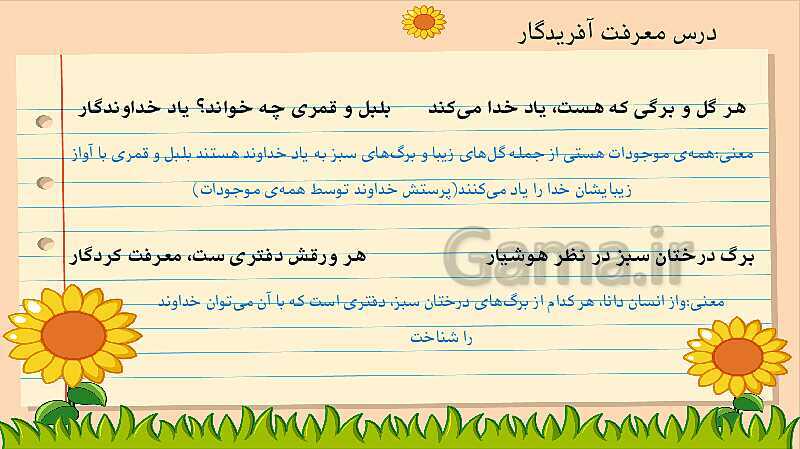 درس معرفت آفریدگار
هر گل و برگی که هست، یاد خدا می‌کند     بلبل و قمری چه خواند؟ یاد خداوندگار
معنی:همه‌ی موجودات هستی از جمله گل‌های زیبا و برگ‌های سبز به یاد خداوند هستند بلبل و قمری با آواز
زیبایشان خدا را یاد می‌کنند(پرستش خداوند توسط همه‌ی موجودات)
برگ درختان سبز در نظر هوشیار     هر ورقش دفتری ست، معرفت کردگار
معنی:واز انسان دانا، هر کدام از برگ‌های درختان سبز، دفتری است که با آن می‌توان خداوند
را شناخت
Gama.ir